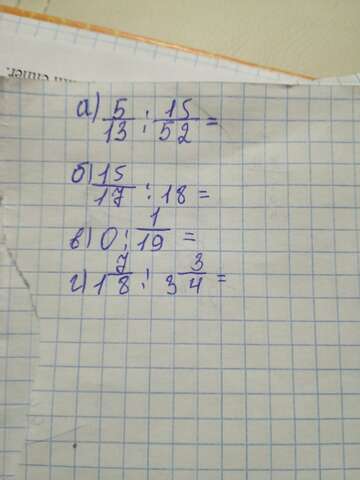 а) 5/13 : 15/52 =
б) 15/17 : 18 =
в) 0 : 1/19 =
г) 1 7/8 : 3 3/4 =